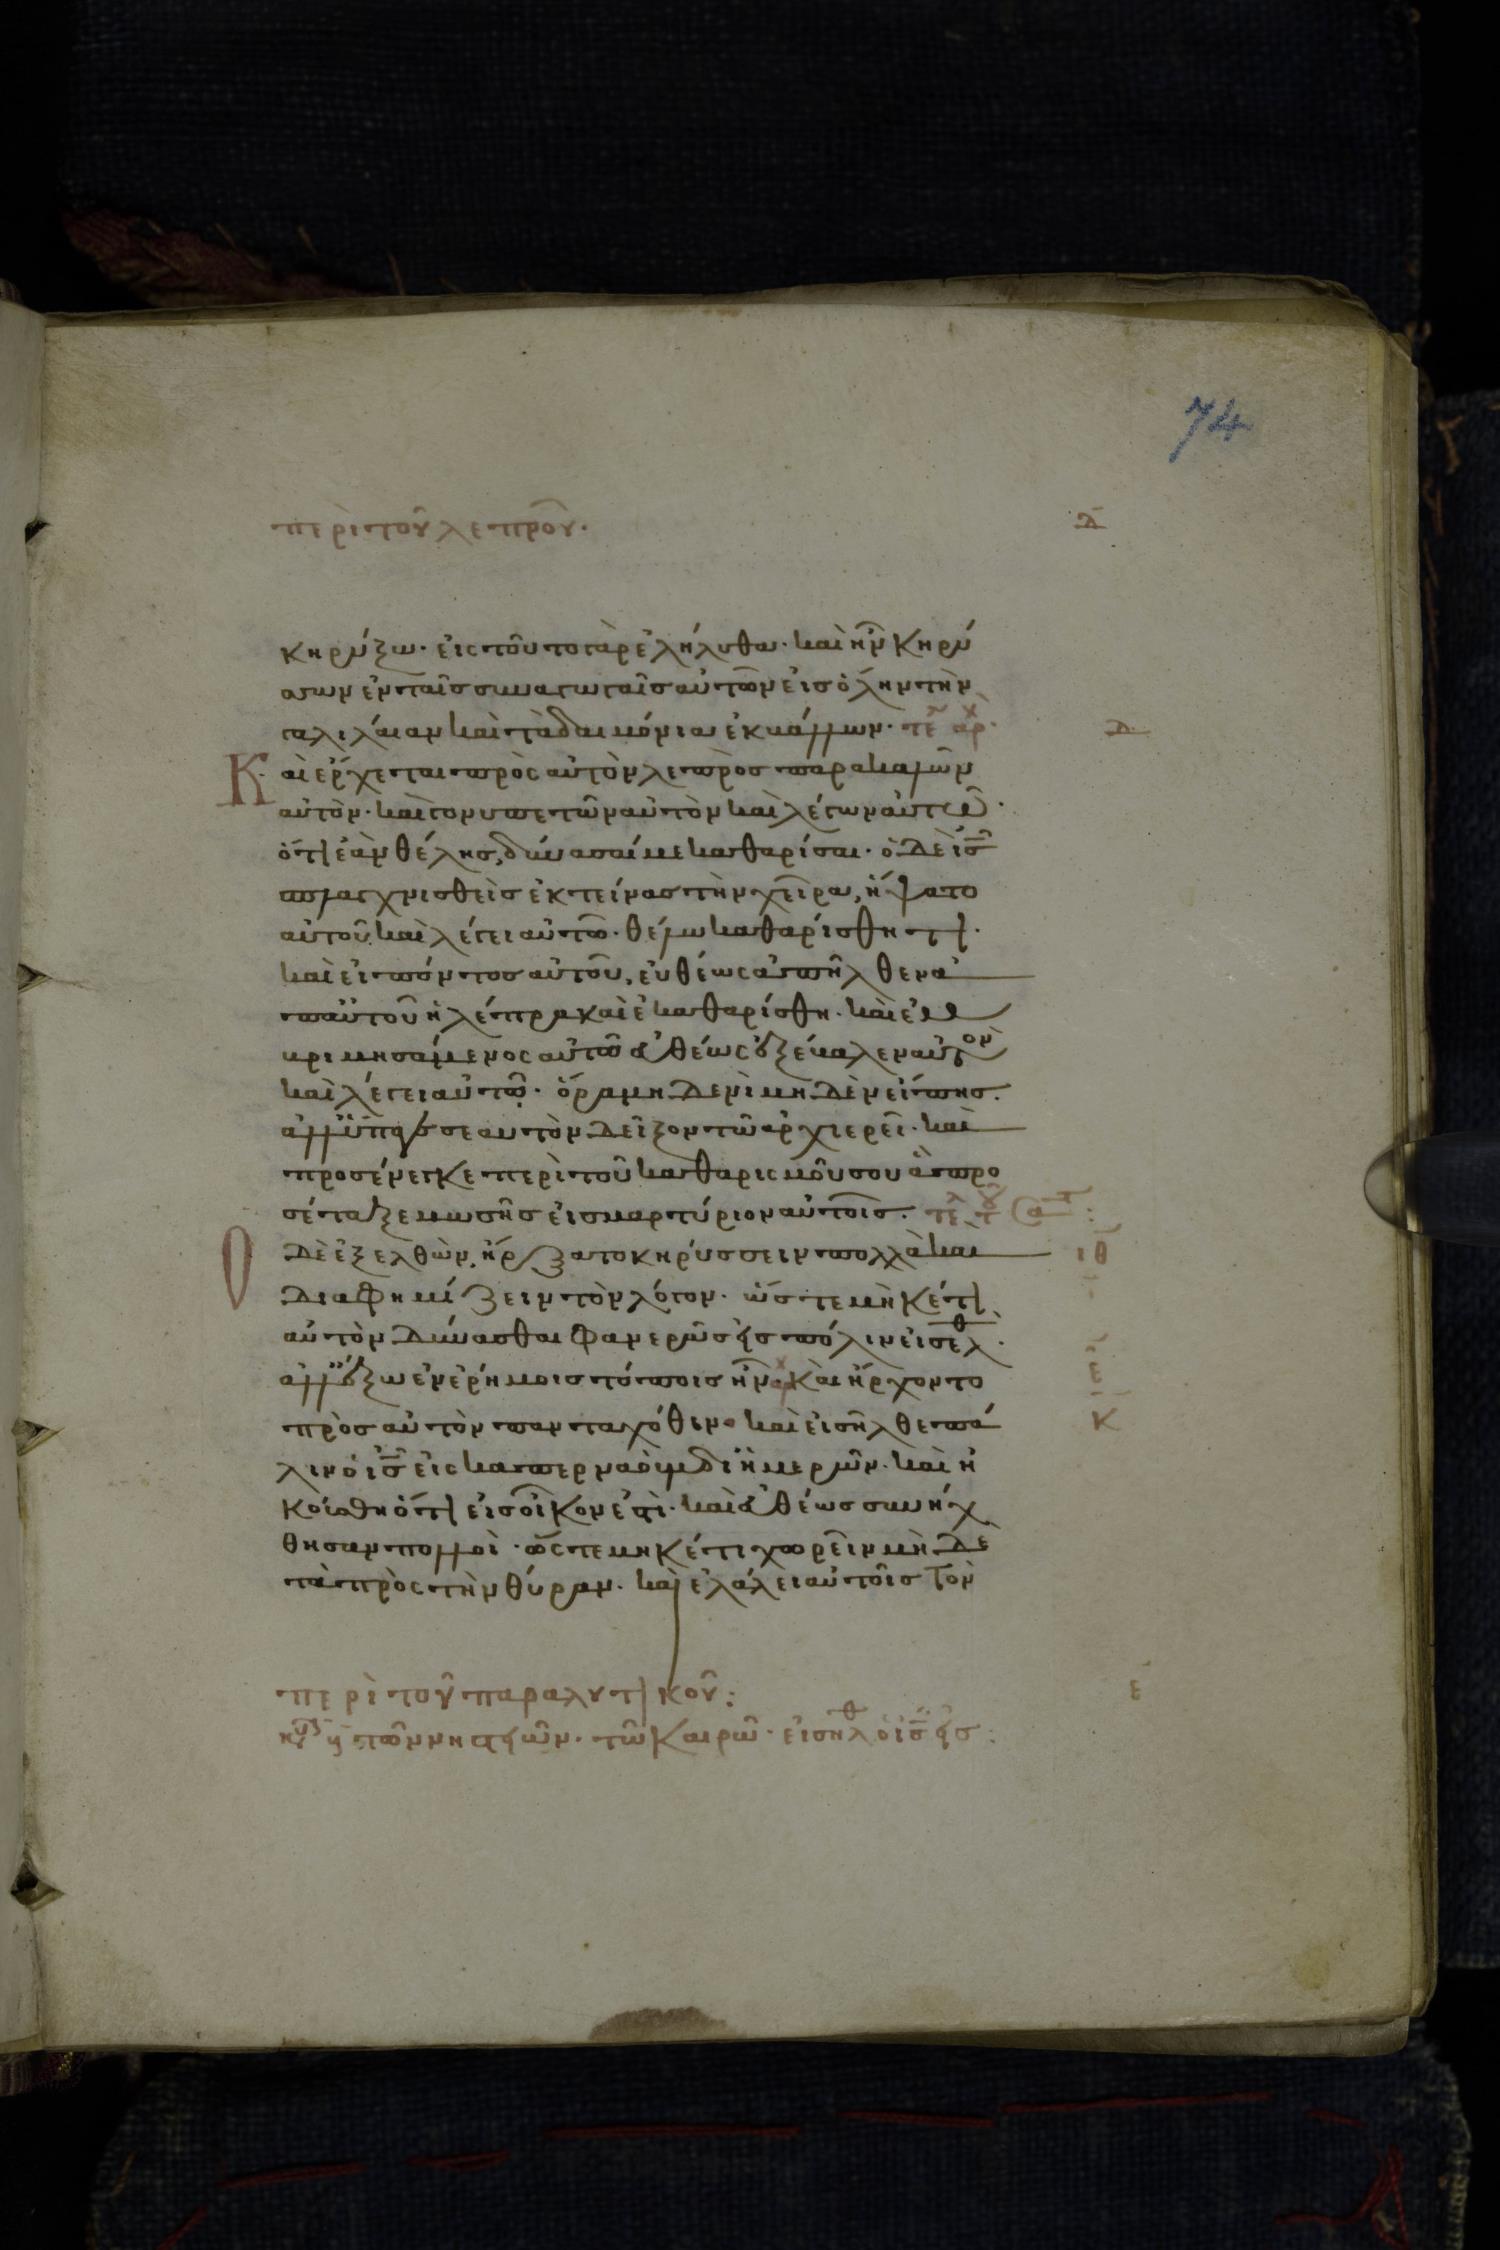 74
περὶ τοῦ λεπροῦ. Δ
κηρύξω· εἰς τοῦτο γὰρ ἐλήλυθα· καὶ ἦν κηρύ
σσων ἐν ταῖς συναγωγαῖς αὐτῶν εἰς ὅλην τὴν
γαλιλαίαν καὶ τὰ δαιμόνια ἐκβάλλων· τε αρχ Δ
Καὶ ἔρχεται πρὸς αὐτὸν λεπρὸς παρακαλῶν
αὐτὸν· καὶ γονυπετῶν αὐτὸν καὶ λέγων αὐτῶ·
ὅτι ἐὰν θέλης, δύνασαί με καθαρίσαι· ὁ δὲ ἰς
σπλαγχνισθεὶς ἐκτείνας τὴν χεῖρα, ἥψατο
αὐτοῦ, καὶ λέγει αὐτῶ· θέλω καθαρίσθητι·
καὶ εἰπόντος αὐτοῦ, εὐθέως ἀπῆλθεν ἀ
π αὐτοῦ ἡ λέπρα καὶ ἐκαθαρίσθη· καὶ ἐμ
βριμησάμενος αὐτῶ εὐθέως ἐξέβαλεν αὐτὸν
καὶ λέγει αὐτῶ· ὅρα μηδενὶ μηδὲν εἴπης·
ἀλλ ὕπαγε σεαυτὸν δεῖξον τῶ ἀρχιερεῖ· καὶ
προσένεγκε περὶ τοῦ καθαρισμοῦ σου ἃ προ
σέταξε μωσῆς εἰς μαρτύριον αὐτοῖς·
Ο δὲ ἐξελθὼν, ἤρξατο κηρύσσειν πολλὰ καὶ ιθ
διαφημίζειν τὸν λόγον· ὥστε μηκέτι
αὐτὸν δύνασθαι φανερῶς εἰς πόλιν εἰσελθ·
ἀλλ ἔξω ἐν ἐρήμοις τόποις ἦν· καὶ ἤρχοντο ε
πρὸς αὐτὸν πανταχόθεν· καὶ εἰσῆλθε πά κ
λιν ὁ ἰς εἰς καπερναοὺμ δι ἡμερῶν· καὶ ἠ
κούσθη ὅτι εἰς οἶκον ἐστὶ· καὶ εὐθέως συνήχ
θησαν πολλοὶ· ὥστε μηκέτι χωρεῖν μὴδὲ
τὰ πρὸς τὴν θύραν· καὶ ἐλάλει αὐτοῖς τὸν
περὶ τοῦ παραλυτικοῦ: ε
τῶν νηστειῶν· τῶ καιρῶ· εἰσῆλθ ὁ ἰς εἰς: